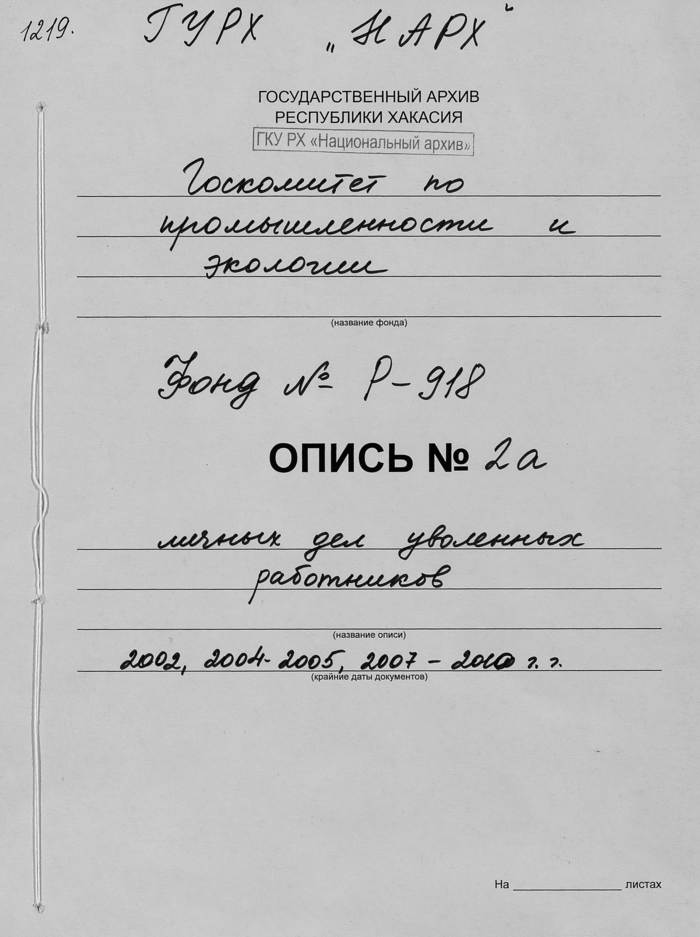 1219.
ГУРХ „НАРХ"
ГОСУДАРСТВЕННЫЙ АРХИВ
РЕСПУБЛИКИ ХАКАСИЯ
ГКУ РХ «Национальный архив»
Госкомитет по
промышленности и
экологии
(название фонда)
Фонд № Р-918
ОПИСЬ № 2а
личных дел уволенных
работников
(название описи)
2002, 2004-2005, 2007-2010 г.г.
(крайние даты документов)
На ________ листах